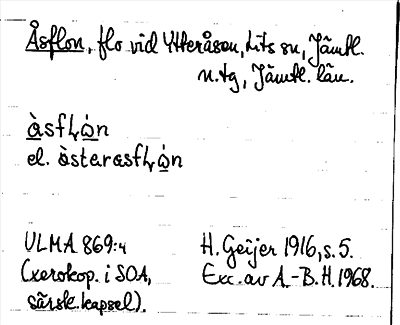 Åsflon, flo vid Ytteråsen, Lits sn, Jämtl.
n.tg, Jämtl. län.
àsfⱢȯ̀n
el. òsterasfⱢȯ̀n
ULMA 869:4
(xerokop. i SOA,
särsk. kapsel).
H. Geijer 1916, s. 5.
Exc. av A.-B. H. 1968.